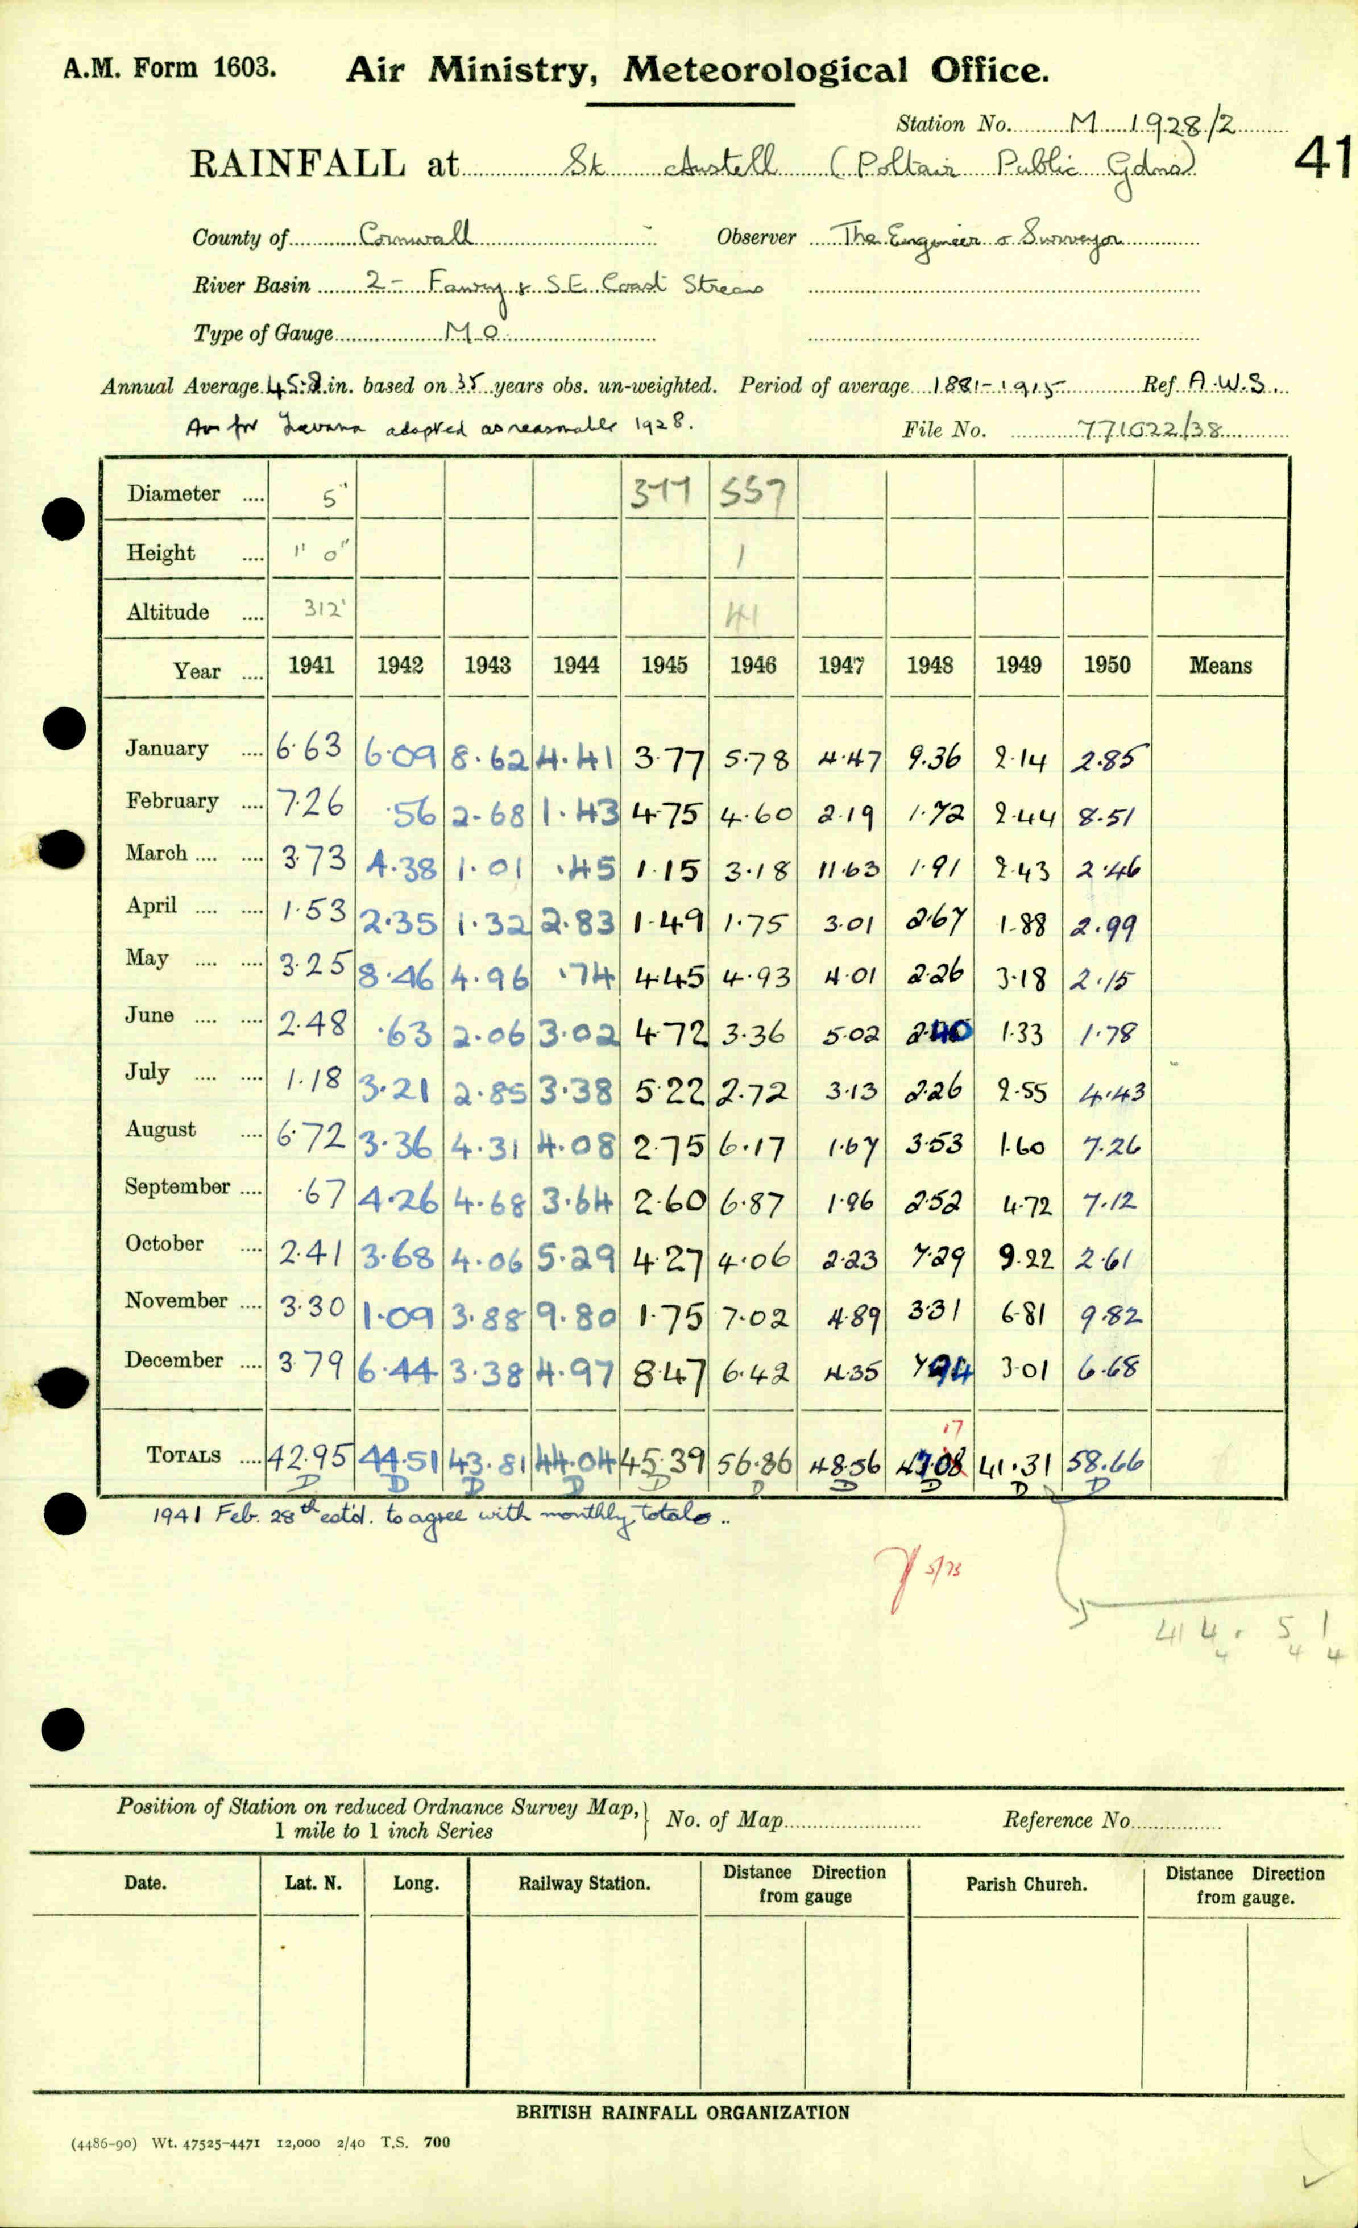 A.M. Form 1603. Air Ministry, Meteorological Office.
Station No. M 1928/2
41
RAINFALL at St Austell (Poltair Public Gdns)
County of Cornwall Observer The Engineer & Surveyor
River Basin 2 - Fowey & S.E. Coast Streams
Type of Gauge M O
Annual Average 45.8 in. based on 35 years obs. un-weighted. Period of average 1881-1915 Ref. A.W.S.
Av for adopted as reasonable 1928. File No. 771022/38
Diameter .... 5" 377 557
Height .... 1' 0" 1
Altitude .... 312' 41
Year .... 1941 1942 1943 1944 1945 1946 1947 1948 1949 1950 Means
January .... 6.63 6.09 8.62 4.41 3.77 5.78 4.47 9.36 2.14 2.85
February .... 7.26 .56 2.68 1.43 4.75 4.60 2.19 1.72 2.44 8.51
March .... .... 3.73 4.38 1.01 .45 1.15 3.18 11.63 1.91 2.43 2.46
April .... .... 1.53 2.35 1.32 2.83 1.49 1.75 3.01 2.67 1.88 2.99
May .... .... 3.25 8.46 4.96 .74 4.45 4.93 4.01 2.26 3.18 2.15
June .... .... 2.48 .63 2.06 3.02 4.72 3.36 5.02 2.40 1.33 1.78
July .... .... 1.18 3.21 2.85 3.38 5.22 2.72 3.13 2.26 2.55 4.43
August .... 6.72 3.36 4.31 4.08 2.75 6.17 1.67 3.53 1.60 7.26
September .... .67 4.26 4.68 3.64 2.60 6.87 1.96 2.52 4.72 7.12
October .... 2.41 3.68 4.06 5.29 4.27 4.06 2.23 7.29 9.22 2.61
November .... 3.30 1.09 3.88 9.80 1.75 7.02 4.89 3.31 6.81 9.82
December .... 3.79 6.44 3.38 4.97 8.47 6.42 4.35 7.94 3.01 6.68
17
TOTALS .... 42.95 44.51 43.81 44.04 45.39 56.86 48.56 47.08 41.31 58.66
D D D D D D D D D D
1941 Feb. 28th est'd. to agree with monthly totals ..
5/73
44.51
4 4 4
Position of Station on reduced Ordnance Survey Map, 1 mile to 1 inch Series } No. of Map Reference No.
Date. Lat. N. Long. Railway Station. Distance Direction from gauge Parish Church. Distance Direction from gauge.
BRITISH RAINFALL ORGANIZATION
(4486-90) Wt. 47525-4471 12,000 2/40 T.S. 700